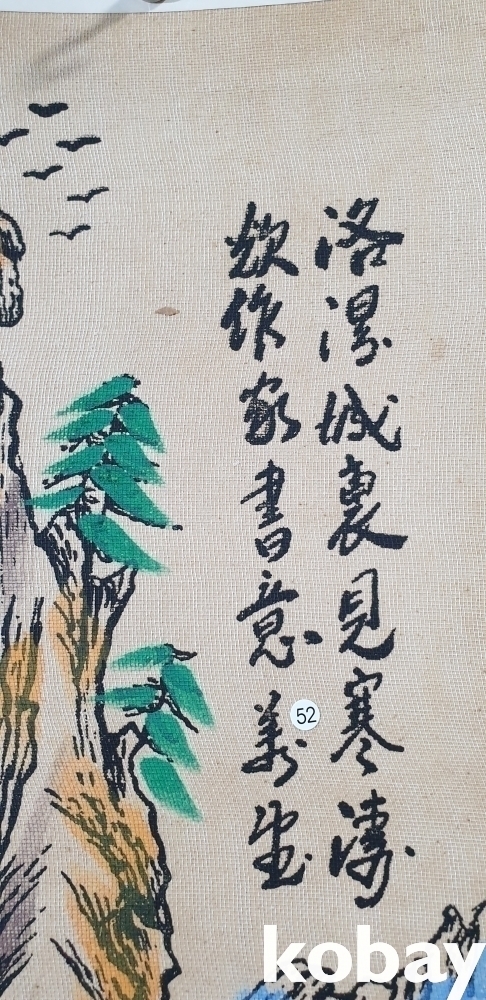 洛城裏見寒濤
欲作家書意
52
kobay